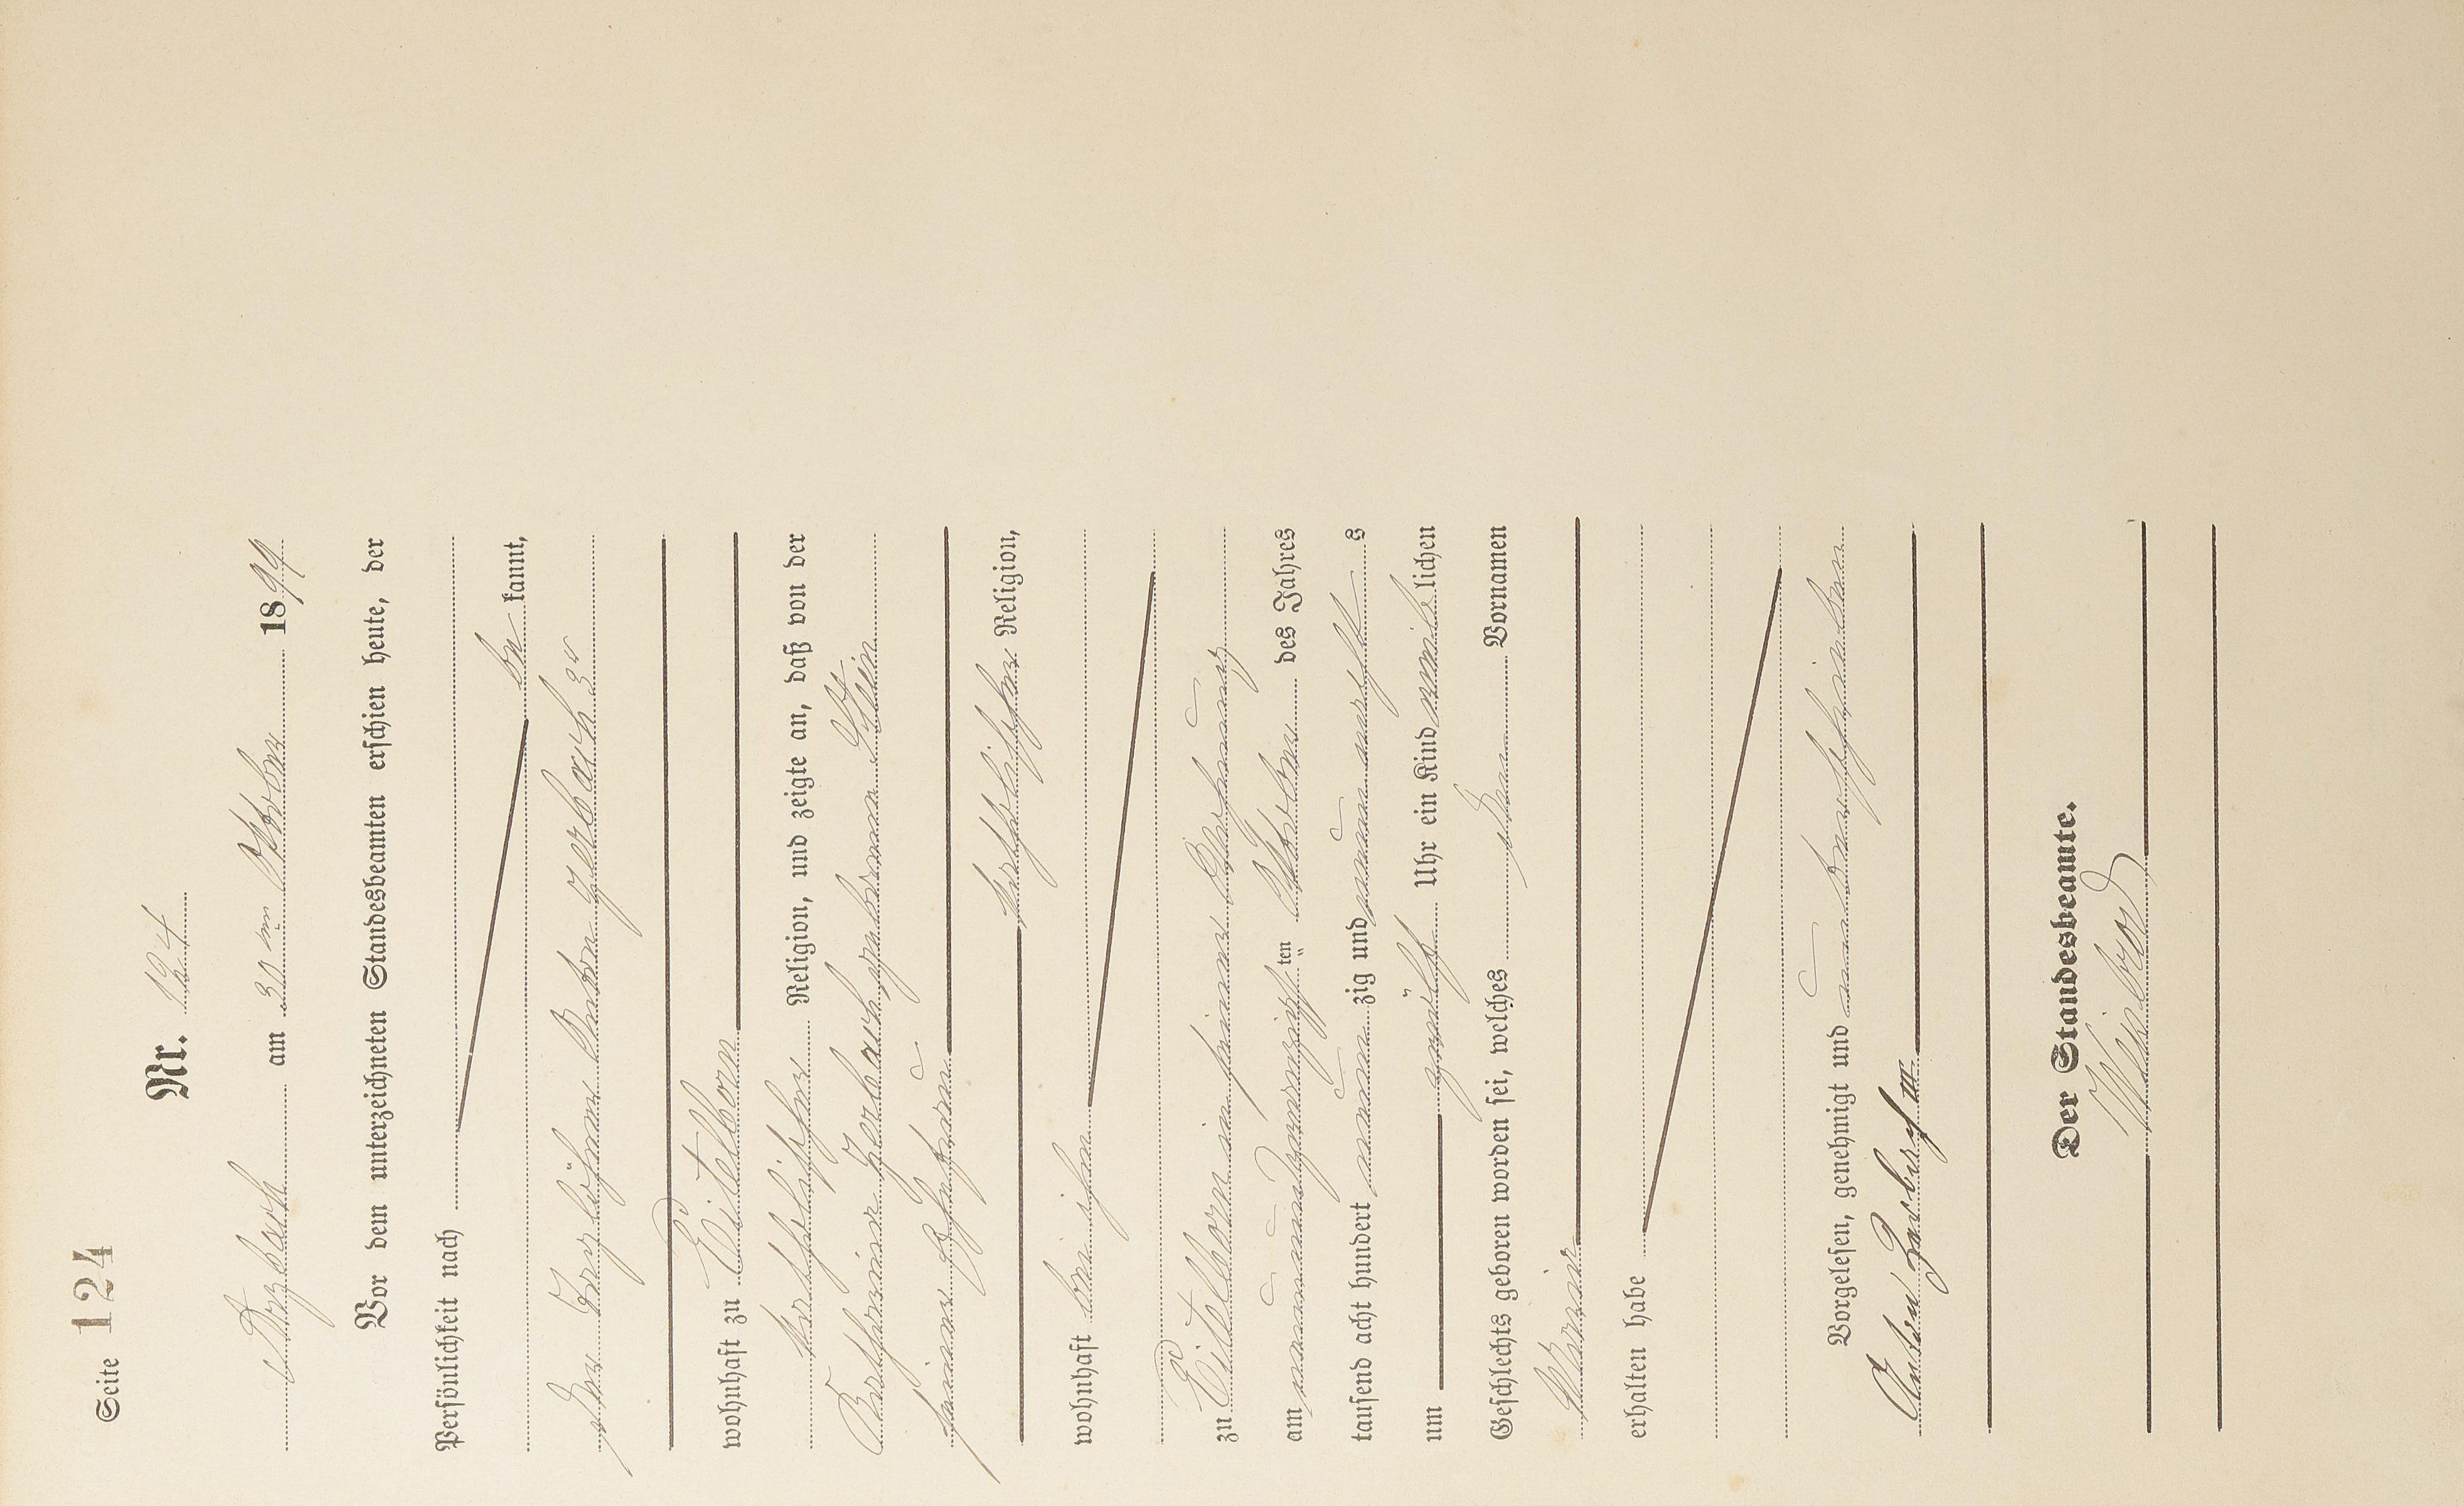 Seite 124
Nr. 124
Arzbach am 30ten Oktober 1899
Vor dem unterzeichneten Standesbeamten erschien heute, der
Persönlichkeit nach
be kannt,
der Taglöhner Anton Herbach 3r
wohnhaft zu Eitelborn
katholischer Religion, und zeigte an, daß von der
Katharina Herbach geborene Stein
seiner Ehefrau
katholischer Religion,
wohnhaft bei ihm
zu Eitelborn in seiner Behausung
am neunundzwanzigsten Oktober des Jahres
tausend acht hundert neun zig und neun nachts
um zwölf Uhr ein Kind weiblichen
Geschlechts geboren worden sei, welches den Vornamen
Maria
erhalten habe
Vorgelesen, genehmigt und unterschrieben
Anton Herbach III
Der Standesbeamte.